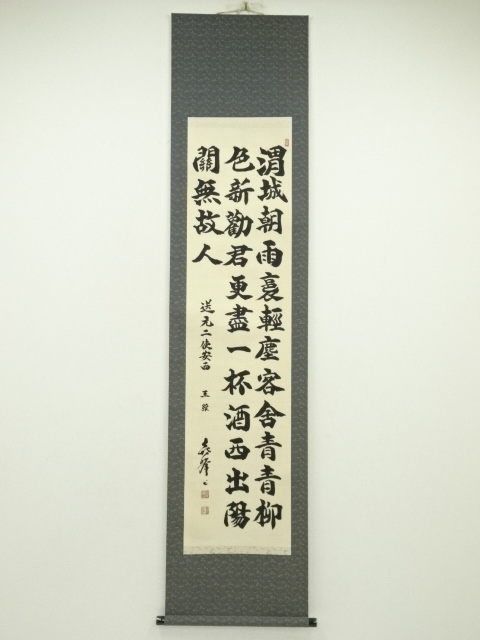 渭城朝雨裛輕塵客舍青青柳
色新勸君更盡一杯酒西出陽
關無故人
送元二使安西
王維